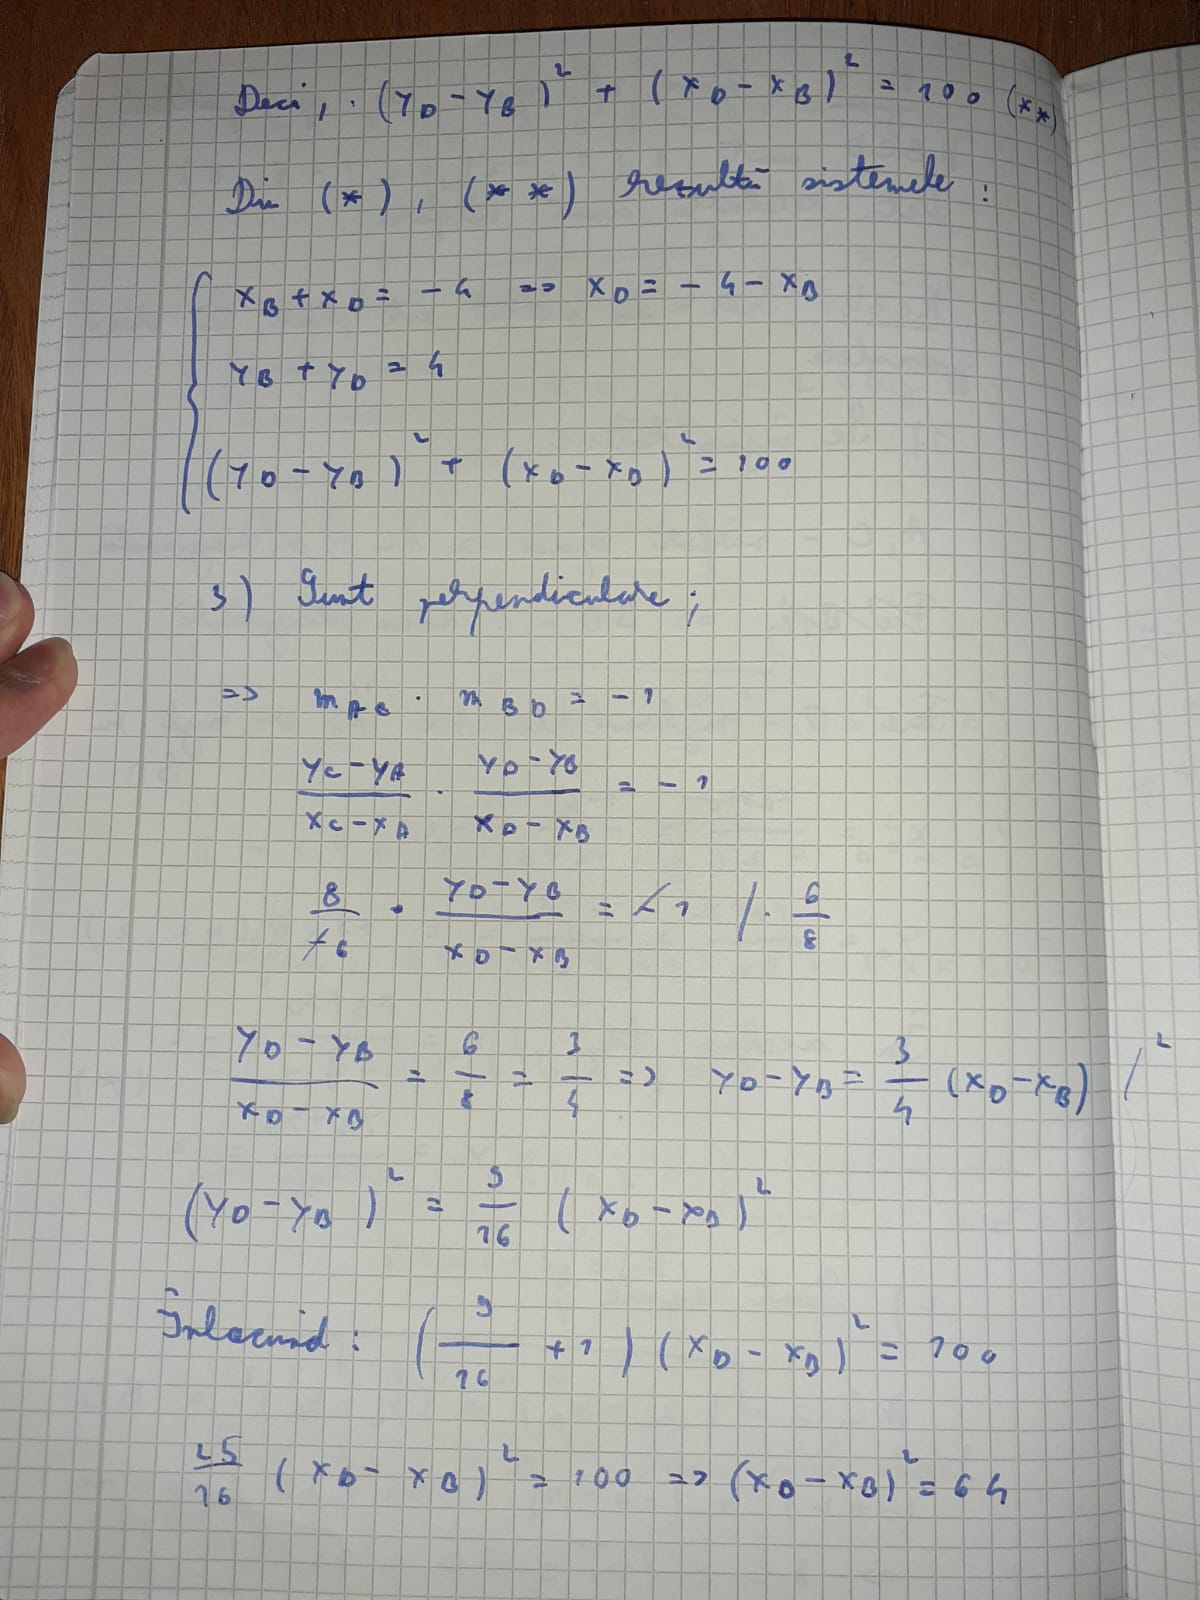 Deci, · (y_D - y_B)² + (x_D - x_B)² = 100 (**)
Din (*), (**) rezultă sistemele:
x_B + x_D = -4 => x_D = -4 - x_B
y_B + y_D = 4
(y_D - y_B)² + (x_D - x_B)² = 100
3) Sunt perpendiculare;
=> m_AC · m_BD = -1
(y_C - y_A)/(x_C - x_A) · (y_D - y_B)/(x_D - x_B) = -1
8/-6 · (y_D - y_B)/(x_D - x_B) = -1 /· 6/8
(y_D - y_B)/(x_D - x_B) = 6/8 = 3/4 => y_D - y_B = 3/4 (x_D - x_B) /²
(y_D - y_B)² = 9/16 (x_D - x_B)²
Înlocuind: (9/16 + 1)(x_D - x_B)² = 100
25/16 (x_D - x_B)² = 100 => (x_D - x_B)² = 64